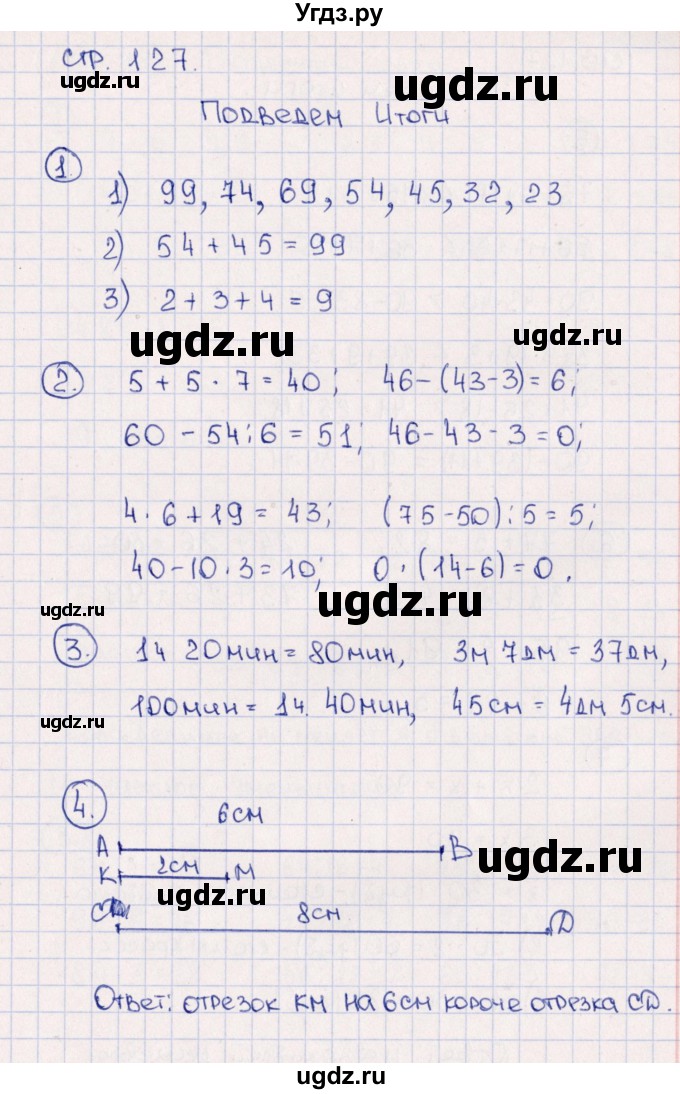 Угдз.ру
стр. 127.
ugdz.ru
Подведем итоги
1.
1) 99, 74, 69, 54, 45, 32, 23
2) 54 + 45 = 99
3) 2 + 3 + 4 = 9
ugdz.ru ugdz.ru
2. 5 + 5 · 7 = 40; 46 - (43 - 3) = 6;
60 - 54 : 6 = 51; 46 - 43 - 3 = 0;
4 · 6 + 19 = 43; (75 - 50) : 5 = 5;
40 - 10 · 3 = 10; 0 · (14 - 6) = 0.
ugdz.ru ugdz.ru
3. 1ч 20мин = 80мин, 3м 7дм = 37дм,
100мин = 1ч. 40мин, 45см = 4дм 5см.
ugdz.ru
4.
6см
A B
ugdz.ru
K 2см M
ugdz.ru
C 8см D
Ответ: отрезок КМ на 6см короче отрезка CD.
ugdz.ru